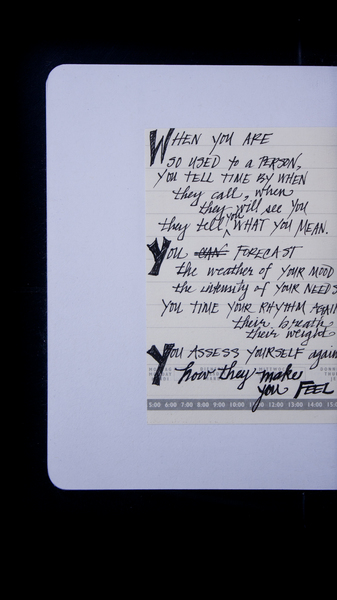 WHEN YOU ARE
SO USED TO A PERSON,
YOU TELL TIME BY WHEN
they call, when
they will see YOU
they tell you WHAT YOU MEAN.
YOU CAN FORECAST
the weather of YOUR MOOD
the intensity of YOUR NEEDS
YOU TIME YOUR RHYTHM AGAIN
their breath
their weight
YOU ASSESS YOURSELF again
how they make
you FEEL
5:00 6:00 7:00 8:00 9:00 10:00 11:00 12:00 13:00 14:00 15:0